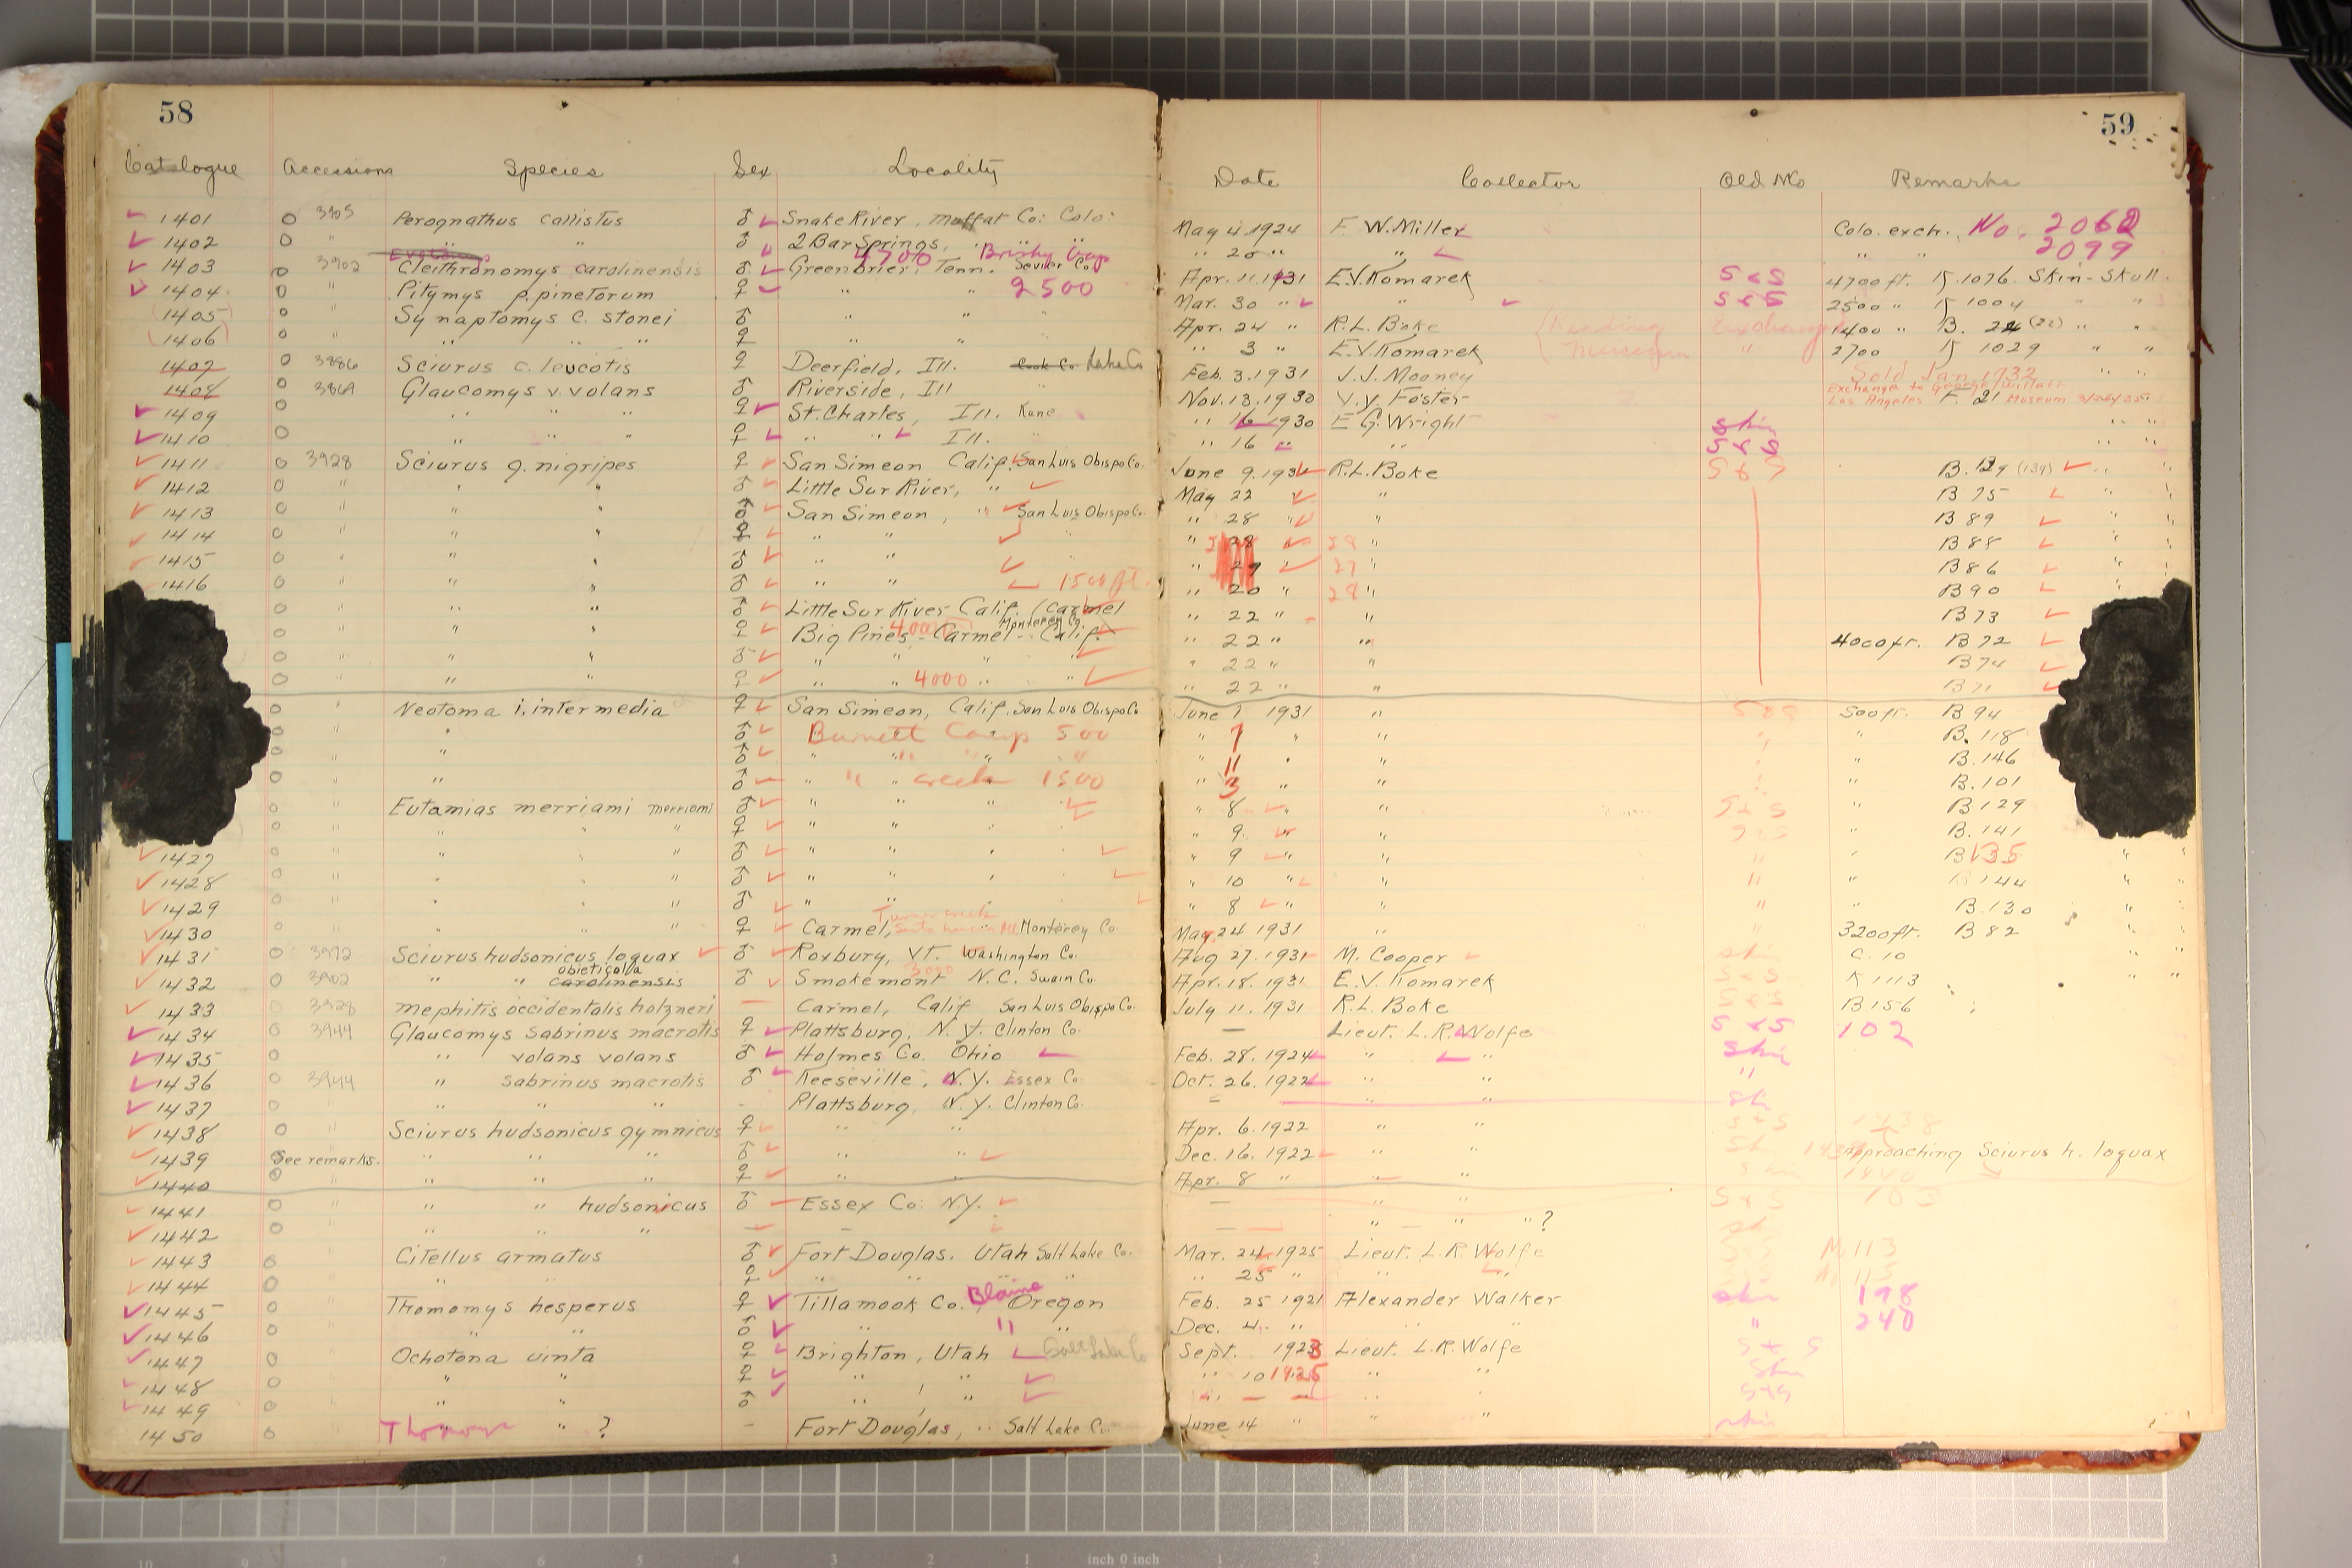 58
59
Catalogue Accessions Species Sex Locality Date Collector Old No Remarks
1401 3905 Perognathus callistus ♂ Snake River, Moffat Co: Colo: May 4 1924 F. W. Miller Colo. exch. No. 2062
1402 " " " ♂ 2 Bar Springs, " " " 20 " " " " 2099
4700 Brushy Camp
1403 3902 Cleithronomys carolinensis ♂ Greenbrier, Tenn. Sevier Co. Apr. 11. 1931 E.V. Komarek S & S 4700 ft. K. 1076. Skin-Skull
1404 " Pitymys p. pinetorum ♀ " " 2500 Mar. 30 " " S & S 2500 " K 1004 " "
1405 " Synaptomys c. stonei ♂ " " Apr. 24 " R.L. Boke Reading exchange 1400 " B. 24 (22) " "
1406 " " " " ♀ " " " 3 " E.V. Komarek Museum " 2700 K 1029 " "
1407 3886 Sciurus c. leucotis ♀ Deerfield, Ill. Cook Co. Lake Co Feb. 3. 1931 J.J. Mooney Sold Jan 1932 " "
1408 3869 Glaucomys v. volans ♂ Riverside, Ill " Nov. 13. 1930 V.Y. Foster
Exchange to George Willett
Los Angeles F. 21 Museum
1409 " " " ♀ St. Charles, Ill. Kane " 16 1930 E G. Wright skin " "
1410 " " " ♀ " " Ill. " " 16 " " S & S " "
1411 3928 Sciurus g. nigripes ♀ San Simeon Calif. San Luis Obispo Co. June 9. 1931 R.L. Boke S & S B. 139 (139) " "
1412 " " " ♂ Little Sur River, " May 22 " " B 75 " "
1413 " " " ♂ San Simeon, " San Luis Obispo Co. " 28 " " B 89 " "
1414 " " " ♀ " " " " 28 " 28 " B 88 " "
1415 " " " ♂ " " " " 27 " 27 " B 86 " "
1416 " " " ♂ " " 1500 ft. " 20 " 28 " B 90 " "
" " " ♂ Little Sur River Calif. (Carmel " 22 " " B 73
" " " ♀ Big Pines - Carmel - Calif. Monterey Co. 4000 " 22 " " 4000 ft. B 72
" " " ♂ " " " " " 22 " " B 74
" " " ♀ " " 4000 " " " 22 " " B 71
" Neotoma i. intermedia ♀ San Simeon, Calif. San Luis Obispo Co June 1 1931 " S & S 500 ft. B 94
" " ♂ Burnett Camp 500 " 7 " " " " B. 118
" " ♂ " " " " " 11 " " " " B. 146
" " ♂ " " creek 1500 " 3 " " " " B. 101
" Eutamias merriami merriami ♂ " " " " 8 " " S & S " B 129
" " " " ♀ " " " " 9. " " S & S " B. 141
1427 " " " " ♂ " " " " 9 " " " " B 135 " "
1428 " " " " ♂ " " " " 10 " " " " B 144 " "
1429 " " " " ♂ " " " 8 " " " B. 130 " "
Turner creek
1430 " " " " ♀ Carmel, Monterey Co. May 24 1931 " " 3200 ft. B 82 " "
1431 3972 Sciurus hudsonicus loquax ♂ Roxbury, VT. Washington Co. Aug 27. 1931 M. Cooper sk. C. 10 " "
abieticola 3000
1432 3902 " " carolinensis ♂ Smokemont N.C. Swain Co. Apr. 18. 1931. E.V. Komarek S & S K 1113 " "
1433 3928 Mephitis occidentalis holzneri — Carmel, Calif San Luis Obispo Co. July 11. 1931 R.L. Boke S & S B 156
1434 3944 Glaucomys Sabrinus macrotis ♀ Plattsburg, N.Y. Clinton Co. — Lieut. L.R. Wolfe S & S 102
1435 " " volans volans ♂ Holmes Co. Ohio Feb. 28. 1924 " " Skin
1436 3944 " Sabrinus macrotis ♂ Keeseville, N.Y. Essex Co. Oct. 26. 1922 " " "
1437 " " " " - Plattsburg, N.Y. Clinton Co. — " " sk
1438 " Sciurus hudsonicus gymnicus ♀ " " Apr. 6. 1922 " " S & S 1438
1439 See remarks. " " " ♂ " " Dec. 16. 1922 " " Sk Approaching Sciurus h. loquax
1440 " " " " ♀ " " Apr. 8 " " " 1440
1441 " " " hudsonicus ♂ Essex Co: N.Y. — " " S & S 103
1442 " " " " — — " — — " — " " ? sk
1443 Citellus armatus ♂ Fort Douglas. Utah Salt Lake Co. Mar. 24. 1925 Lieut. L.R. Wolfe S & S M 113
1444 " " ♀ " " " " " 25 " " "
1445 Thomomys hesperus ♀ Tillamook Co. Blaine Oregon Feb. 25 1921 Alexander Walker skin 198
1446 " " ♂ " " " Dec. 4. " " " " 240
1447 Ochotona uinta ♀ Brighton, Utah Salt Lake Co Sept. 1923 Lieut. L.R. Wolfe S & S
1448 " " ♀ " " " 10 1925 " " Skin
1449 " " ♂ " " " — — " " S & S
1450 Thomomys " ? — Fort Douglas, " Salt Lake Co. June 14 " " " skin